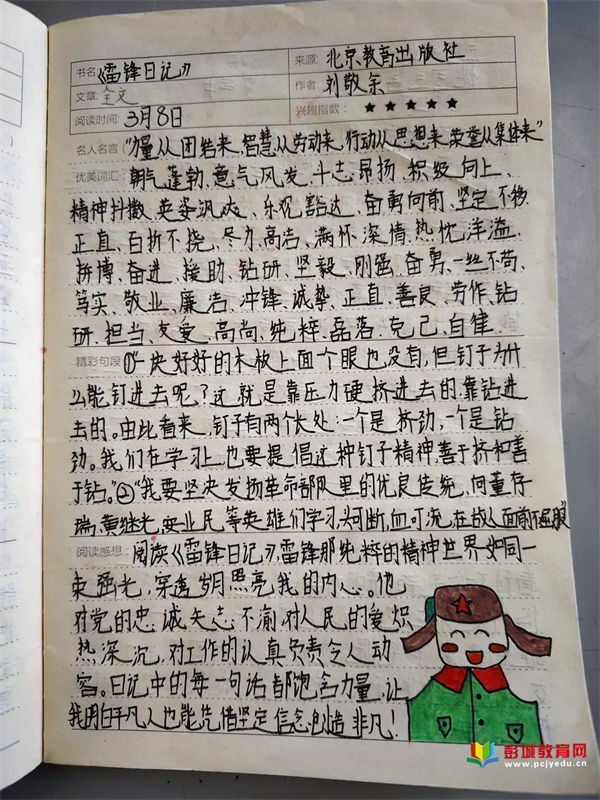 书名 《雷锋日记》 来源: 北京教育出版社
文章: 全文 作者: 刘敬余
阅读时间: 3月8日 兴趣指数: ★★★★★
名人名言 "力量从团结来,智慧从劳动来,行动从思想来,荣誉从集体来"
优美词汇: 朝气蓬勃、意气风发、斗志昂扬、积极向上、
精神抖擞、英姿飒爽、乐观豁达、奋勇向前、坚定不移
正直、百折不挠、尽力、高洁、满怀深情、热忱、洋溢、
拼博、奋进、援助、钻研、坚毅、刚强、奋勇、一丝不苟、
笃实、敬业、廉洁、冲锋、诚挚、正直、善良、劳作、钻
研、担当、友爱、高尚、纯粹、磊落、克己、自律.
精彩句段 ①一块好好的木板上面个眼也没有,但钉子为什
么能钉进去呢?这就是靠压力硬挤进去的,靠钻进
去的。由此看来,钉子有两个长处:一个是挤劲,一个是钻
劲。我们在学习上也要提倡这种钉子精神善于挤和善
于钻。②"我要坚决发扬革命部队里的优良传统,向董存
瑞,黄继光,安业民等英雄们学习,头可断,血可流,在敌人面前不屈服"
阅读感想: 阅读《雷锋日记》,雷锋那纯粹的精神世界如同一
束强光,穿透岁月照亮我的内心。他
对党的忠诚矢志不渝,对人民的爱炽
热深沉,对工作的认真负责令人动
容。日记中的每一句话都饱含力量,让
我明白平凡人也能凭借坚定信念创造非凡!
彭城教育网
www.pcjyedu.cn